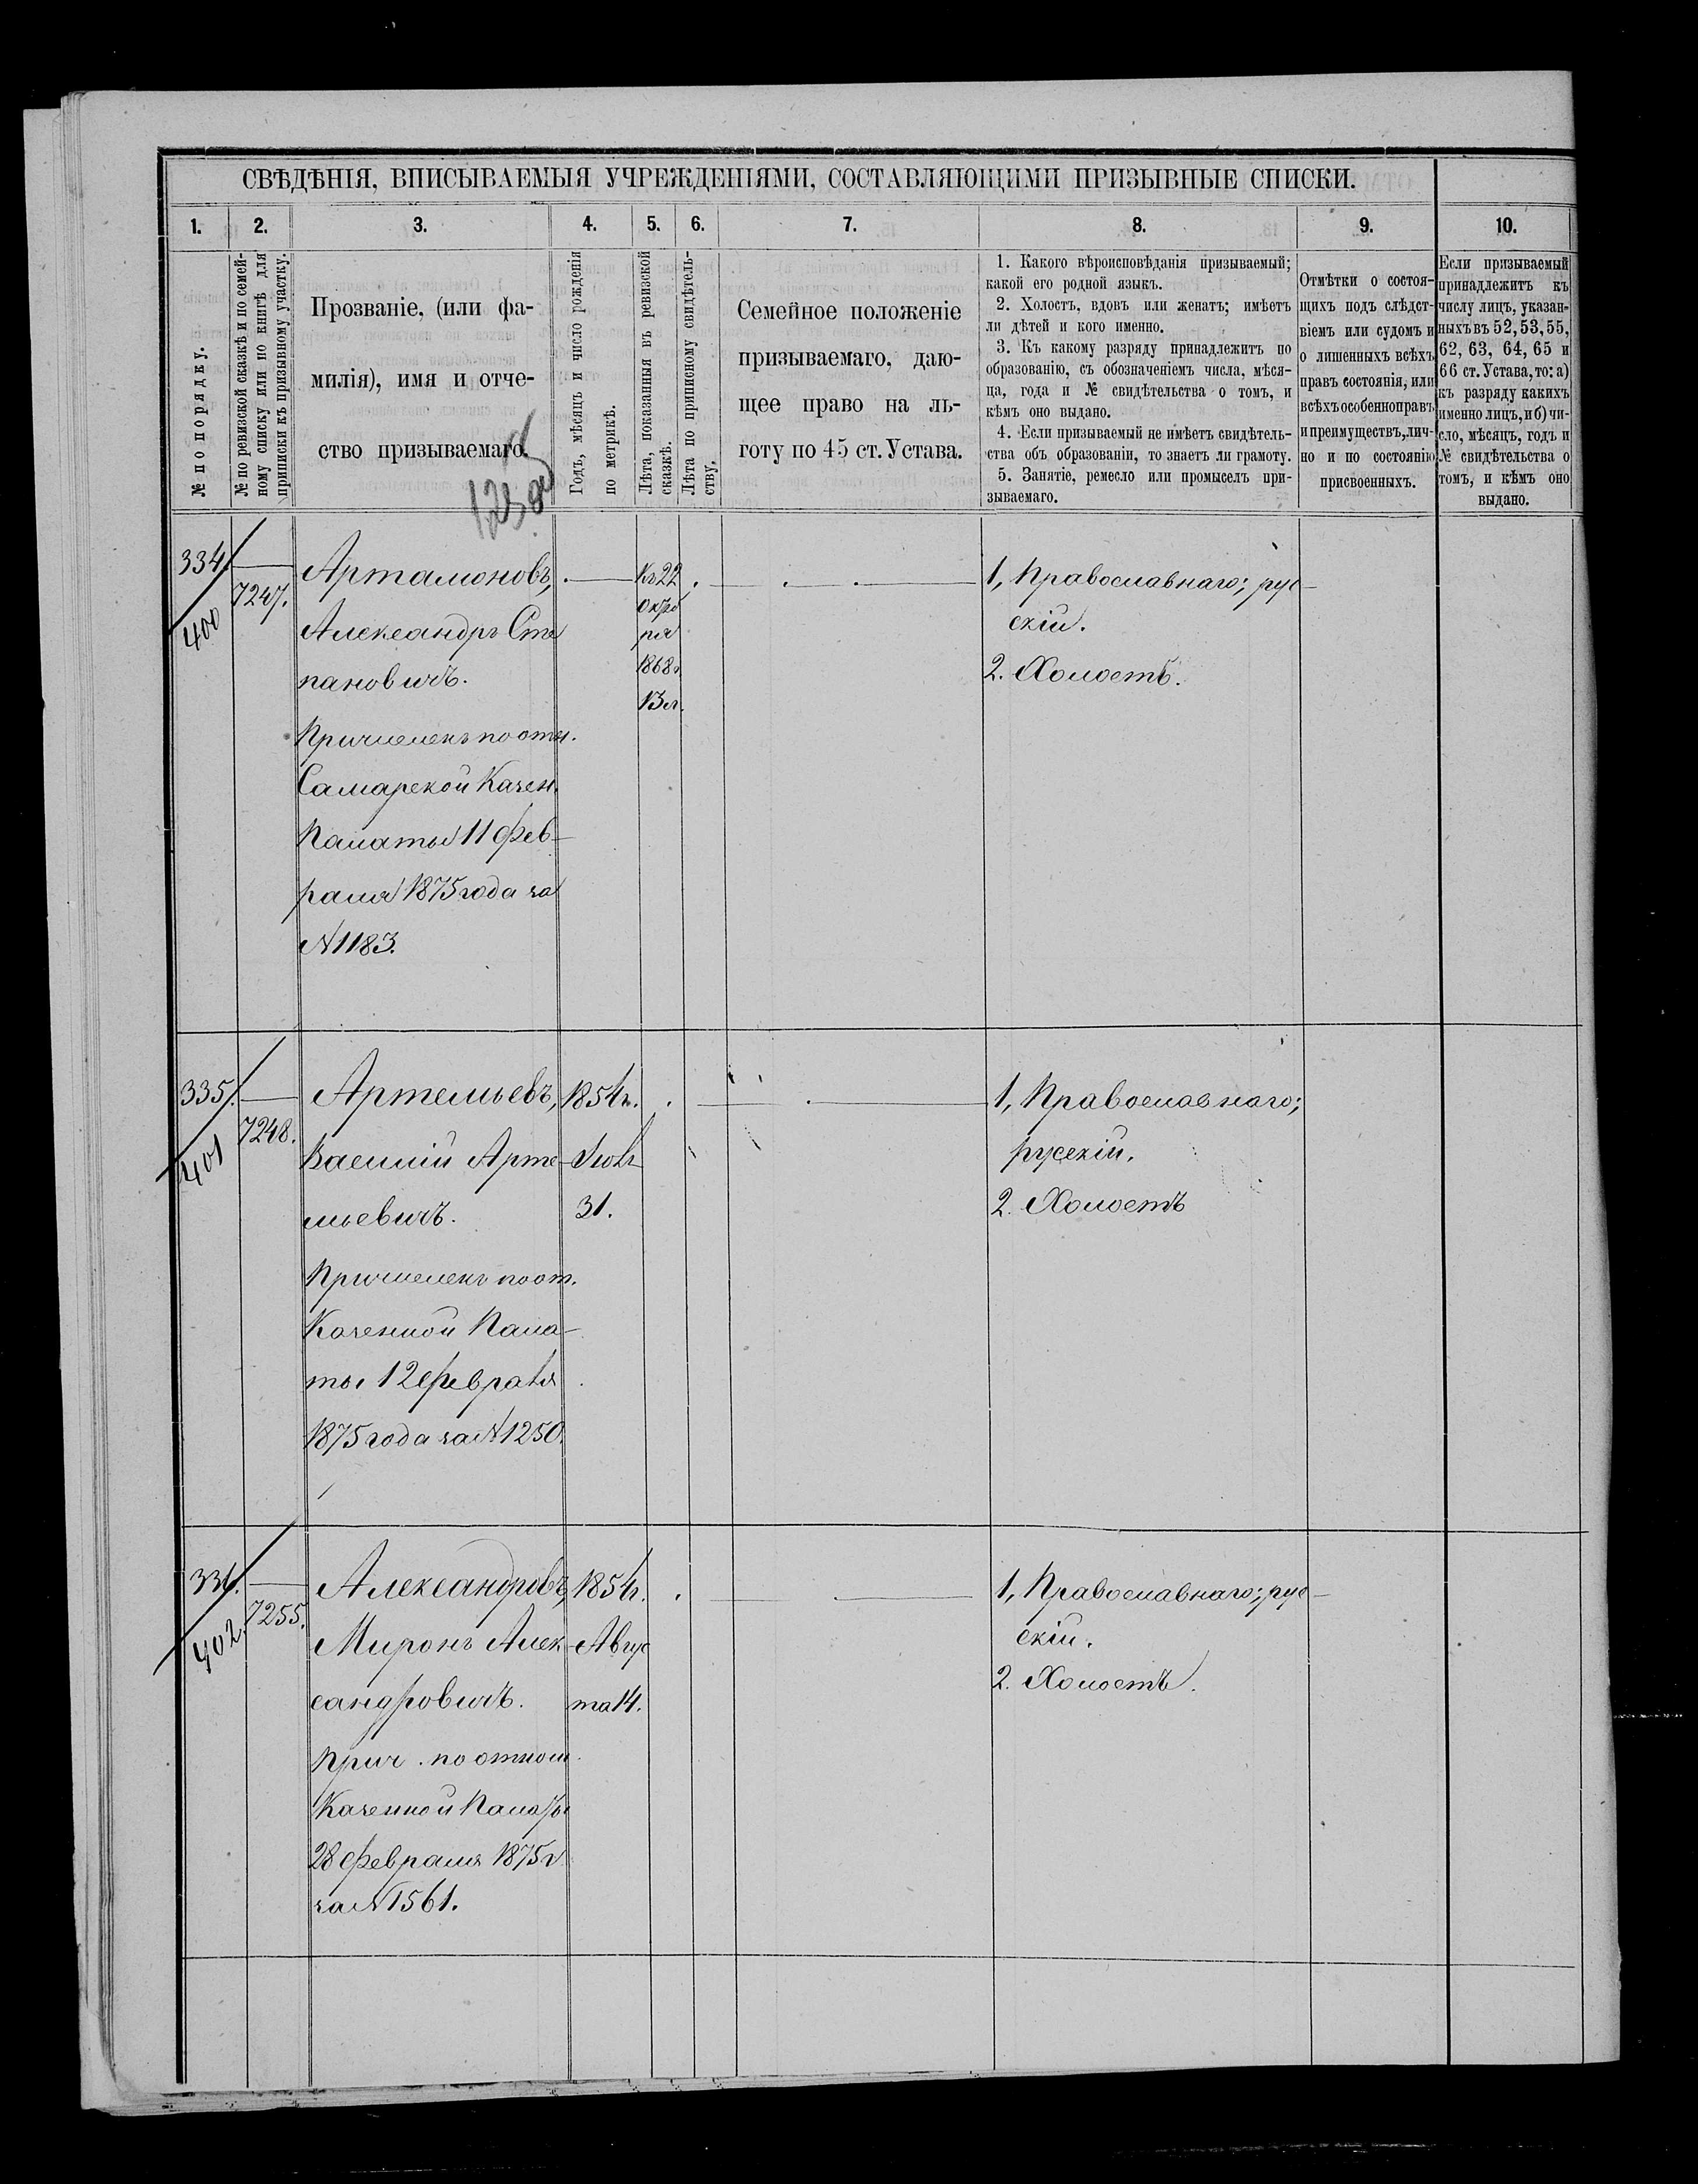 СВѢДѢНІЯ, ВПИСЫВАЕМЫЯ УЧРЕЖДЕНІЯМИ, СОСТАВЛЯЮЩИМИ ПРИЗЫВНЫЕ СПИСКИ.
1. 2. 3. 4. 5. 6. 7. 8. 9. 10.
№ по порядку.
№ по ревизской сказкѣ и по семей-
ному списку или по книгѣ для
приписки къ призывному участку.
Прозваніе, (или фа-
милія), имя и отче-
ство призываемаго.
Годъ, мѣсяцъ и число рожденія
по метрикѣ.
Лѣта, показанныя въ ревизской
сказкѣ.
Лѣта по приписному свидѣтель-
ству.
Семейное положеніе
призываемаго, даю-
щее право на ль-
готу по 45 ст. Устава.
1. Какого вѣроисповѣданія призываемый;
какой его родной языкъ.
2. Холостъ, вдовъ или женатъ; имѣетъ
ли дѣтей и кого именно.
3. Къ какому разряду принадлежитъ по
образованію, съ обозначеніемъ числа, мѣся-
ца, года и № свидѣтельства о томъ, и
кѣмъ оно выдано.
4. Если призываемый не имѣетъ свидѣтель-
ства объ образованіи, то знаетъ ли грамоту.
5. Занятіе, ремесло или промыселъ при-
зываемаго.
Отмѣтки о состоя-
щихъ подъ слѣдст-
віемъ или судомъ и
о лишенныхъ всѣхъ
правъ состоянія, или
всѣхъ особенно правъ
и преимуществъ, лич-
но и по состоянію
присвоенныхъ.
Если призываемый
принадлежитъ къ
числу лицъ, указан-
ныхъ въ 52, 53, 55,
62, 63, 64, 65 и
66 ст. Устава, то: а)
къ разряду какихъ
именно лицъ, и б) чи-
сло, мѣсяцъ, годъ и
№ свидѣтельства о
томъ, и кѣмъ оно
выдано.
334.
400
7247.
Артамоновъ,
Александръ Сте
пановичъ.
Причисленъ по отн.
Самарской Казен.
Палаты 11 фев-
раля 1875 года за
№ 1183.
Къ 22
октб
ря
1868 г.
13 л.
1, Православнаго; рус-
скій.
2. Холостъ.
335.
401
7248.
Артемьевъ,
Василій Арте-
мьевичъ.
Причисленъ по от.
Казенной Пала-
ты 12 февраля
1875 года за № 1250.
1854 г.
Іюля
31.
1, Православнаго;
русскій.
2. Холостъ
336.
402.
7255.
Александровъ,
Миронъ Алек-
сандровичъ.
Прич. по отнош.
Казенной Палаты
28 февраля 1875 г.
за № 1561.
1854 г.
Авгус
та 14.
1, Православнаго; рус-
скій.
2. Холостъ.